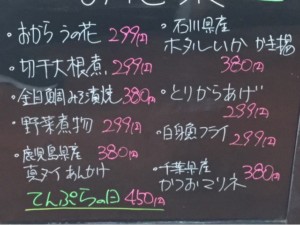 ・おから うの花 299円
・切干大根煮 299円
・金目鯛みそ漬焼 380円
・野菜煮物 299円
・鹿児島県産 380円
真ダイあんかけ
てんぷらの日 450円
・石川県産
ホタルいか かき揚
380円
・とりからあげ
299円
・白身魚フライ
299円
・千葉県産 380円
かつおマリネ